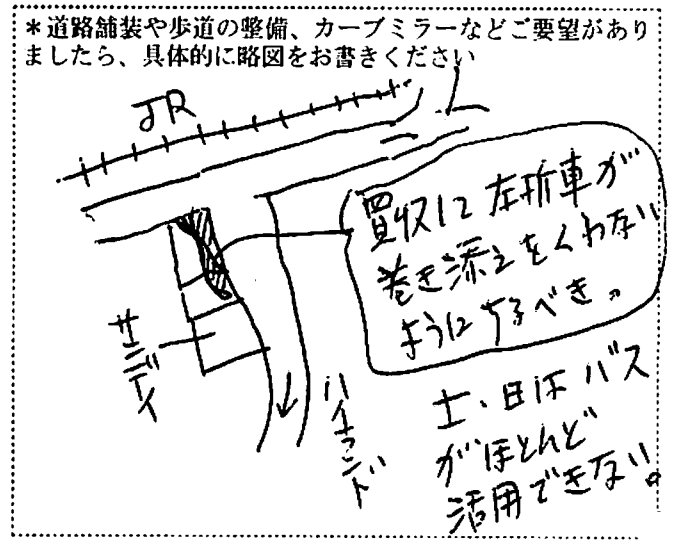 ＊道路舗装や歩道の整備、カーブミラーなどご要望があり
ましたら、具体的に略図をお書きください
JR
買収に左折車が
巻き添えをくわない
ようにするべき。
サンディ
ハイランド
土、日はバス
がほとんど
活用できない。